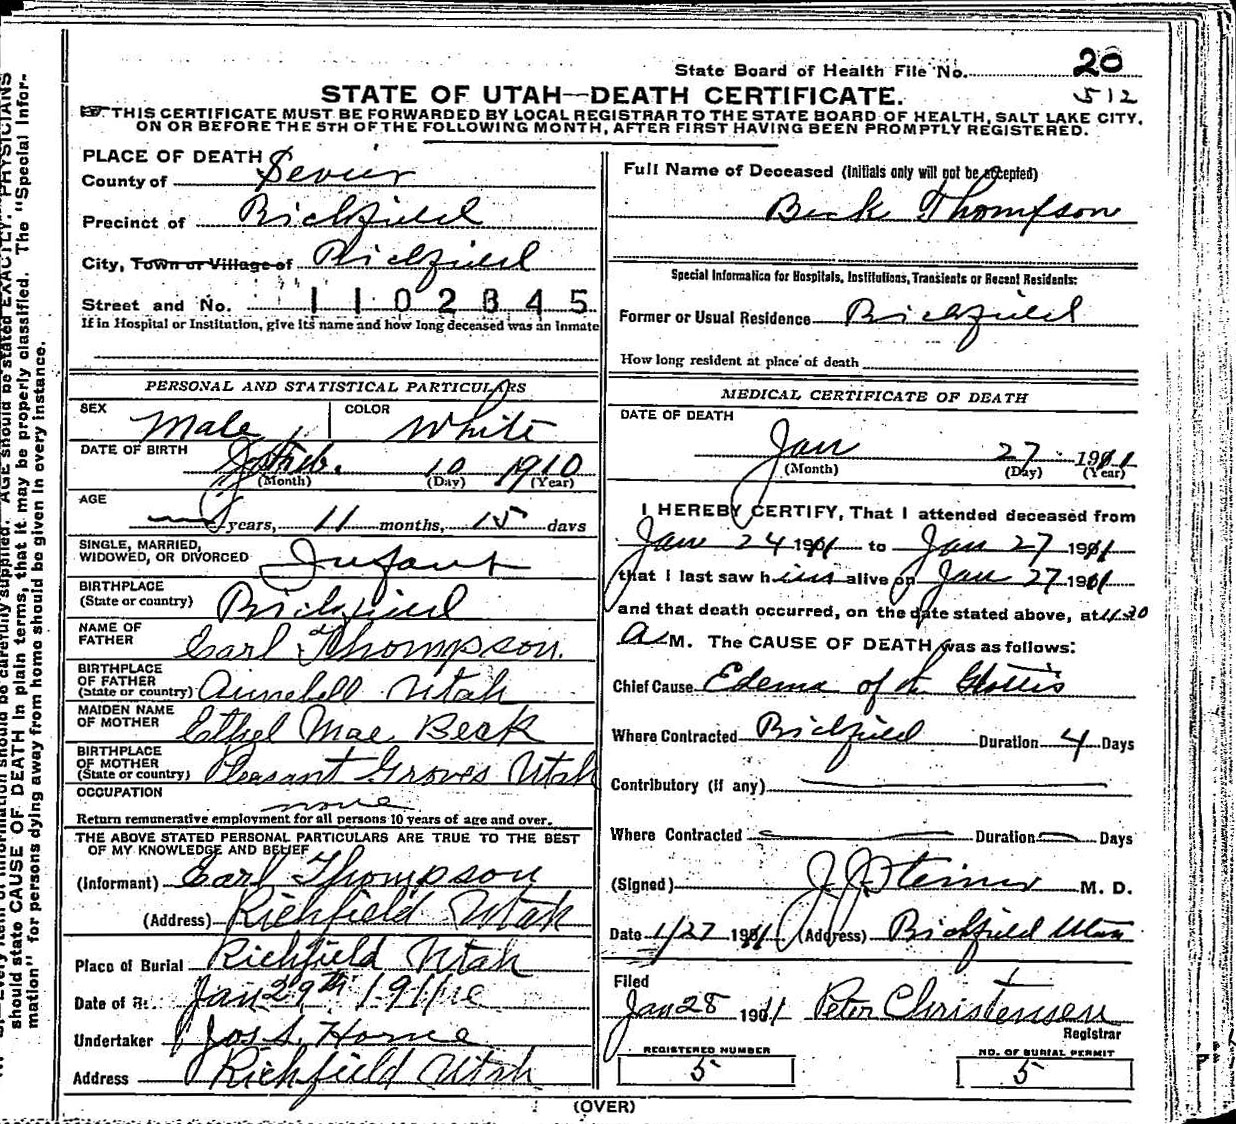 State Board of Health File No. 20
512
STATE OF UTAH—DEATH CERTIFICATE.
THIS CERTIFICATE MUST BE FORWARDED BY LOCAL REGISTRAR TO THE STATE BOARD OF HEALTH, SALT LAKE CITY,
ON OR BEFORE THE 5TH OF THE FOLLOWING MONTH, AFTER FIRST HAVING BEEN PROMPTLY REGISTERED.
PLACE OF DEATH
County of Sevier
Precinct of Richfield
City, Town or Village of Richfield
Street and No. 1102345
If in Hospital or Institution, give its name and how long deceased was an inmate
PERSONAL AND STATISTICAL PARTICULARS
SEX Male COLOR White
DATE OF BIRTH 10 1910
(Month) (Day) (Year)
AGE years, 11 months, 15 days
SINGLE, MARRIED,
WIDOWED, OR DIVORCED Infant
BIRTHPLACE
(State or country) Richfield
NAME OF
FATHER Earl Thompson.
BIRTHPLACE
OF FATHER
(State or country) Annabell Utah
MAIDEN NAME
OF MOTHER Ethel Mae Beck
BIRTHPLACE
OF MOTHER
(State or country) Pleasant Groves Utah
OCCUPATION
none
Return remunerative employment for all persons 10 years of age and over.
THE ABOVE STATED PERSONAL PARTICULARS ARE TRUE TO THE BEST
OF MY KNOWLEDGE AND BELIEF
(Informant) Earl Thompson
(Address) Richfield Utah
Place of Burial Richfield Utah
Date of Jan 29th 1911
Undertaker Jos S. Horne
Address Richfield Utah
Full Name of Deceased (Initials only will not be accepted)
Beck Thompson
Special Information for Hospitals, Institutions, Transients or Recent Residents:
Former or Usual Residence Richfield
How long resident at place of death
MEDICAL CERTIFICATE OF DEATH
DATE OF DEATH
Jan 27 1911
(Month) (Day) (Year)
I HEREBY CERTIFY, That I attended deceased from
Jan 24 1911 to Jan 27 1911
that I last saw him alive on Jan 27 1911
and that death occurred, on the date stated above, at
A M. The CAUSE OF DEATH was as follows:
Chief Cause Edema of the Glottis
Where Contracted Richfield Duration 4 Days
Contributory (if any)
Where Contracted Duration Days
(Signed) J. J. Steiner M. D.
Date 1/27 1911 (Address) Richfield Utah
Filed
Jan 28 1911 Peter Christensen
Registrar
REGISTERED NUMBER
5
NO. OF BURIAL PERMIT
5
(OVER)
should state CAUSE OF DEATH in plain terms, that it may be properly classified. The "Special Infor-
mation" for persons dying away from home should be given in every instance.